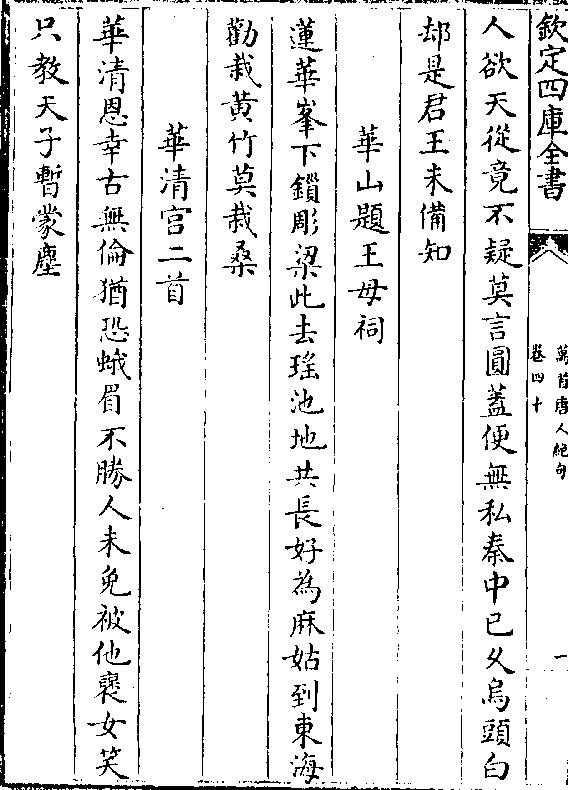 欽定四庫全書
萬首唐人絶句
卷四十
一
人欲天從竟不疑莫言圓蓋便無私秦中已久烏頭白
却是君王未備知
華山題王母祠
蓮華峯下鎖彫梁此去瑶池地共長好為麻姑到東海
勸栽黄竹莫栽桑
華清宫二首
華清恩幸古無倫猶恐蛾眉不勝人未免被他褒女笑
只教天子暫蒙塵